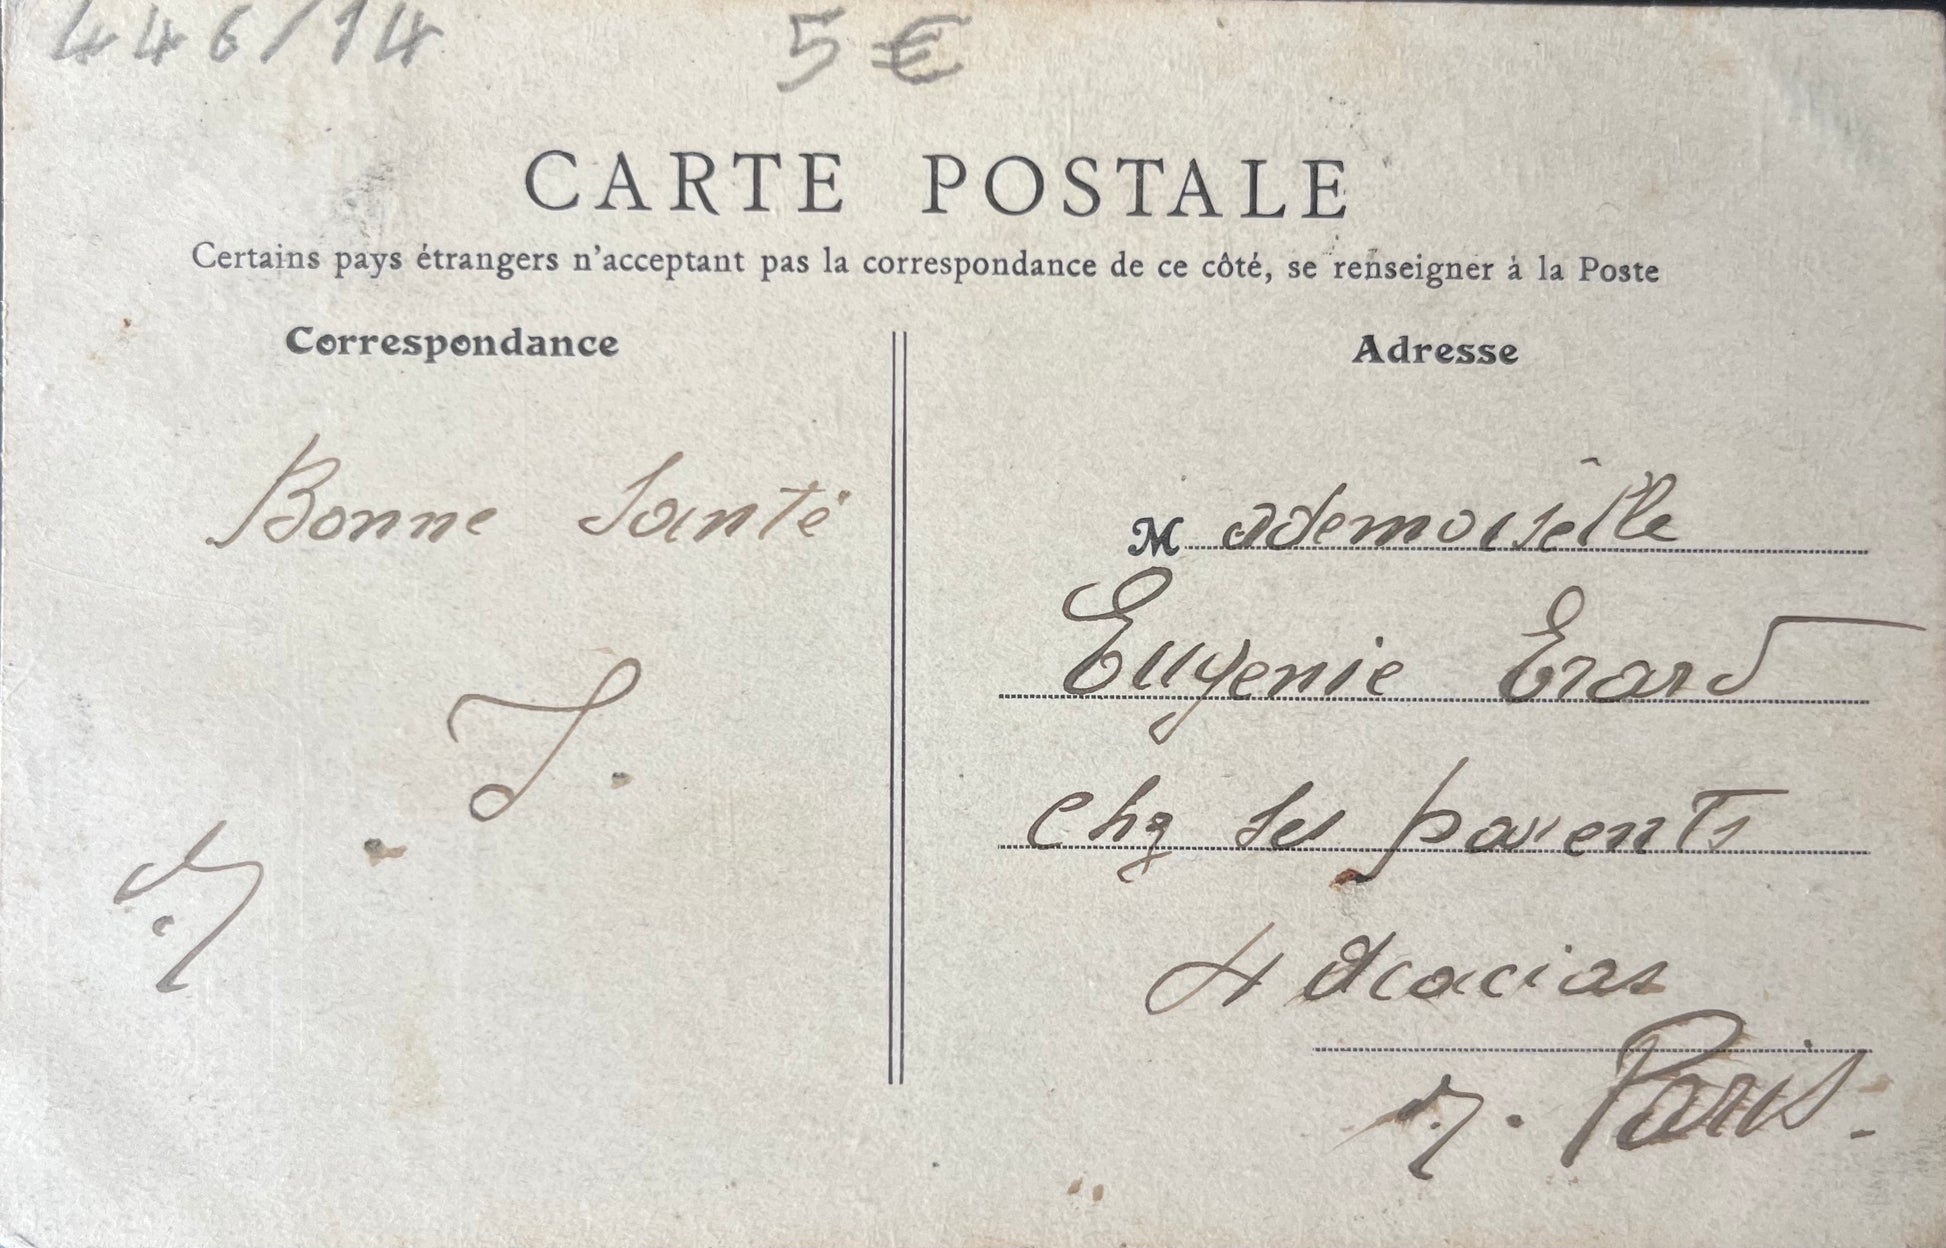 446/14
5 €
CARTE POSTALE
Certains pays étrangers n'acceptant pas la correspondance de ce côté, se renseigner à la Poste
Correspondance
Bonne Santé
Adresse
Mademoiselle
Eugenie Erard
Chz ses parents
4 Acacias
Paris